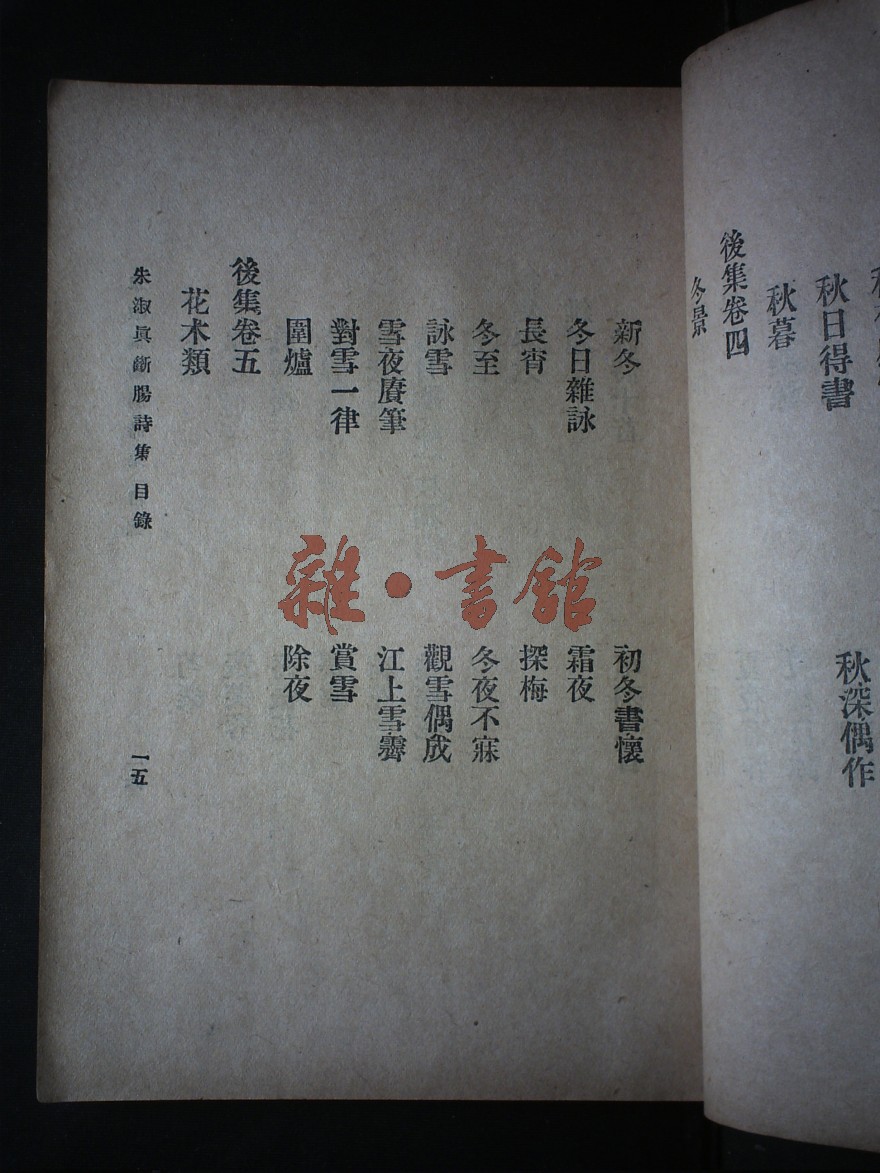 秋日得書
秋深偶作
秋暮
後集卷四
冬景
新冬
初冬書懷
冬日雜詠
霜夜
長宵
探梅
冬至
冬夜不寐
詠雪
觀雪偶成
雪夜賡筆
江上雪霽
對雪一律
賞雪
圍爐
除夜
後集卷五
花木類
朱淑眞斷腸詩集 目錄
一五
雜·書館